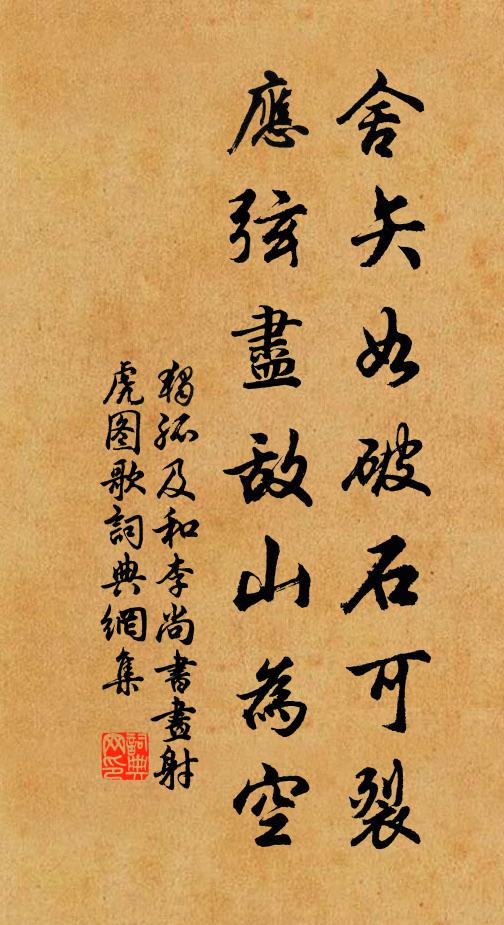 舍矢如破石可裂
應弦盡敌山為空
獨孤及和李尚書畫射
虎图歌詞典網集
詞典
网印